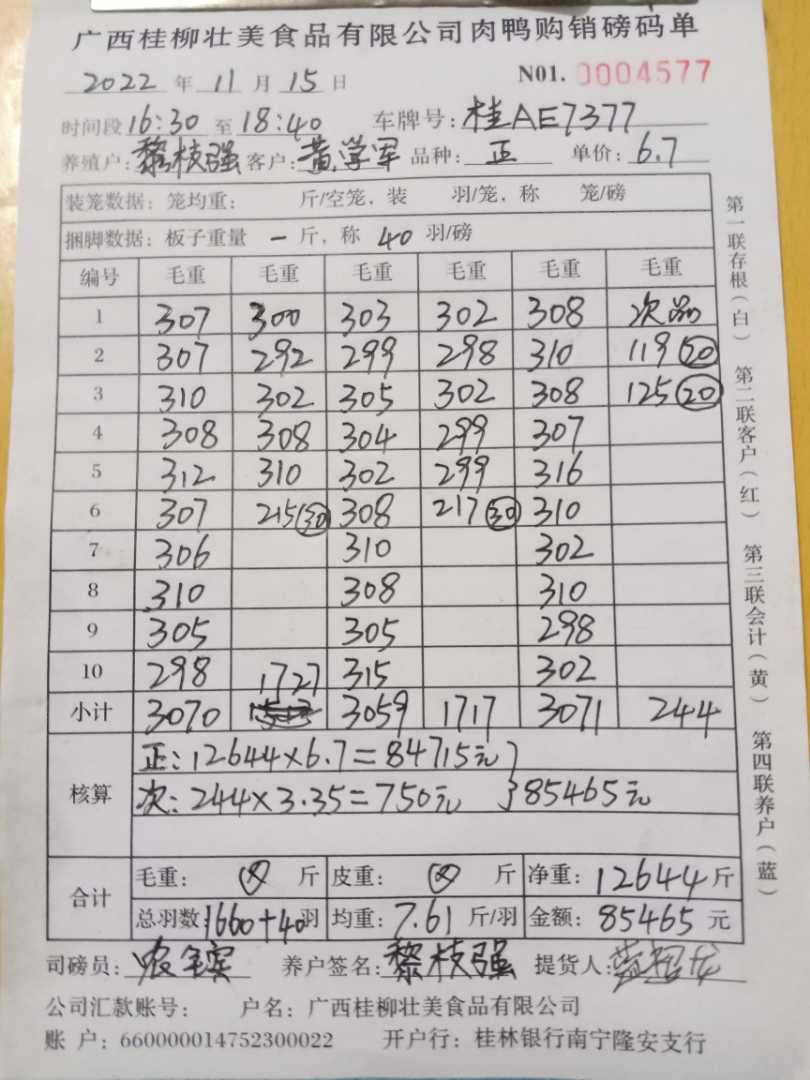 广西桂柳壮美食品有限公司肉鸭购销磅码单
2022 年 11 月 15 日 N01. 0004577
时间段 16:30 至 18:40 车牌号: 桂AE7377
养殖户: 黎枝强 客户: 黄学军 品种: 正 单价: 6.7
装笼数据: 笼均重: 斤/空笼, 装 羽/笼, 称 笼/磅
捆脚数据: 板子重量 一 斤, 称 40 羽/磅
编号 毛重 毛重 毛重 毛重 毛重 毛重
1 307 300 303 302 308 次品
2 307 292 299 298 310 119 20
3 310 302 305 302 308 125 20
4 308 308 304 299 307
5 312 310 302 299 316
6 307 215 30 308 217 30 310
7 306 310 302
8 310 308 310
9 305 305 298
10 298 1727 315 302
小计 3070 3059 1717 3071 244
核算
正: 12644×6.7=84715元
次: 244×3.35=750元 }85465元
合计
毛重: 斤 皮重: 斤 净重: 12644 斤
总羽数 1660+40 羽 均重: 7.61 斤/羽 金额: 85465 元
司磅员: 养户签名: 黎枝强 提货人:
公司汇款账号: 户名: 广西桂柳壮美食品有限公司
账 户: 660000014752300022 开户行: 桂林银行南宁隆安支行
第一联存根(白) 第二联客户(红) 第三联会计(黄) 第四联养户(蓝)